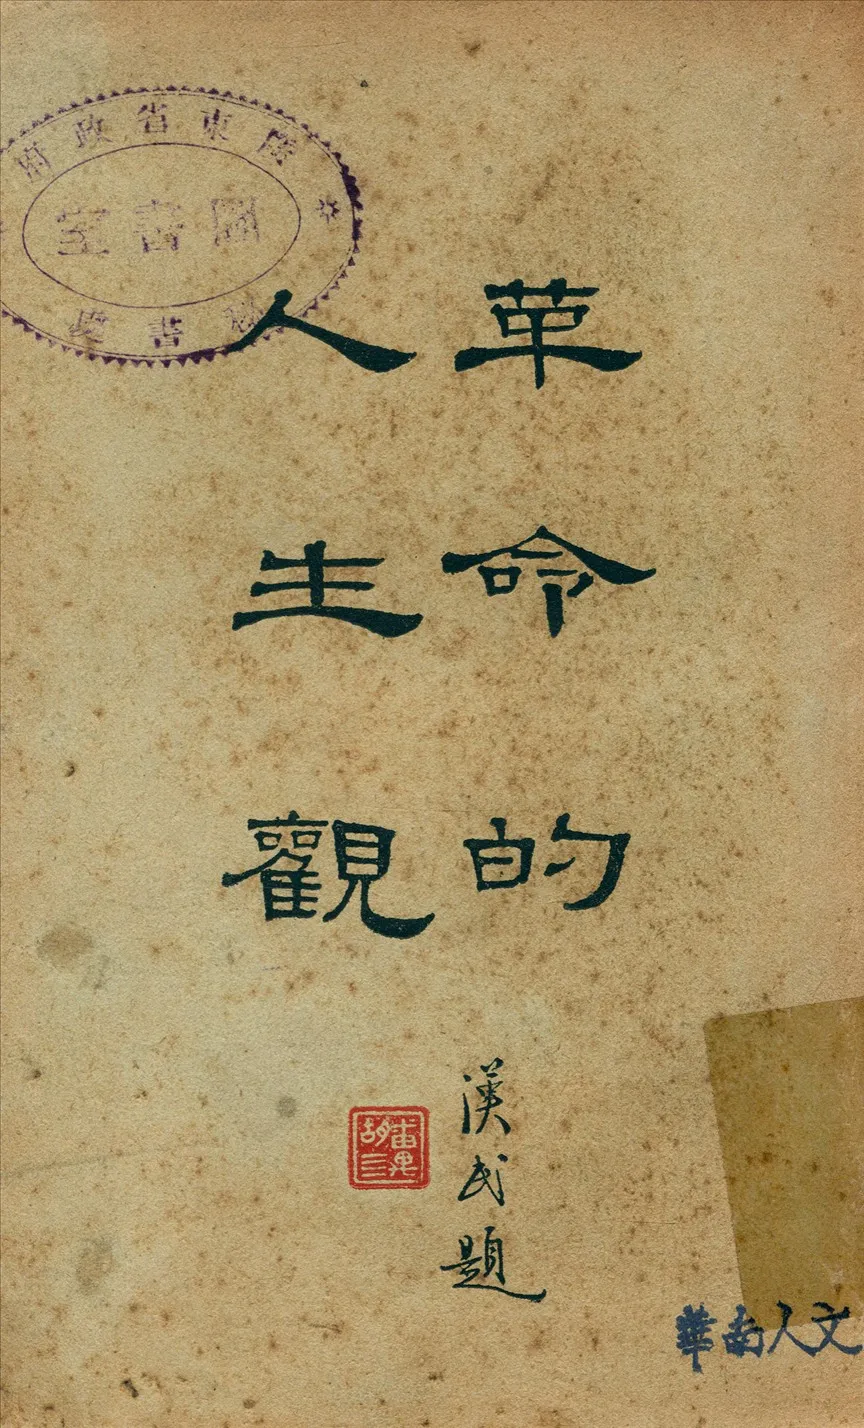 廣東省政府
圖書室
秘書處
革命的
人生觀
漢民題
番禺
胡三
華南人文